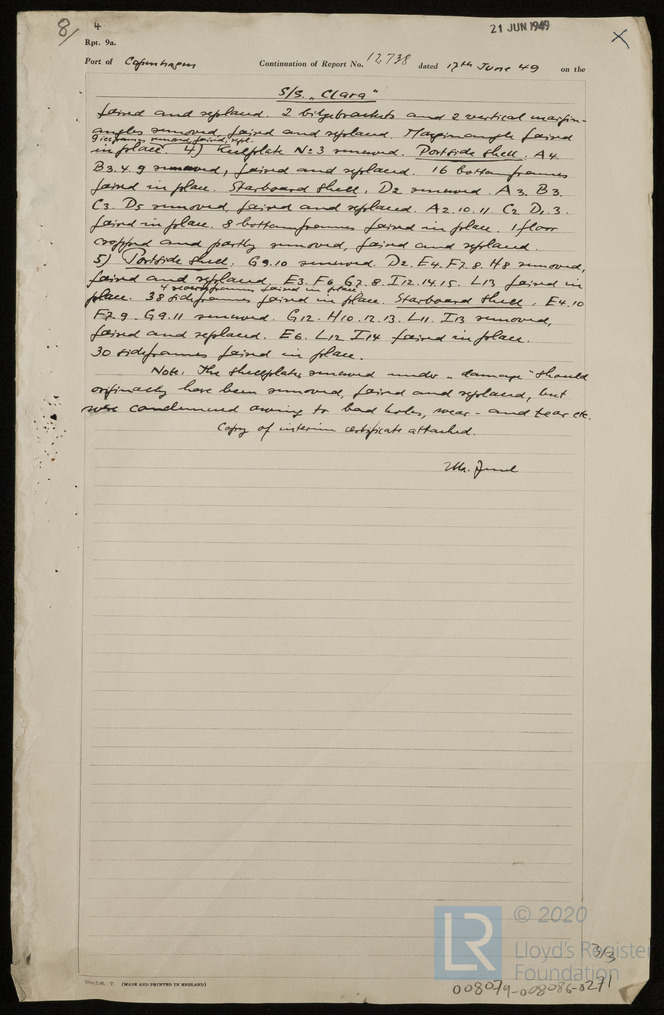 8/ 4
21 JUN 1949
Rpt. 9a.
Port of Copenhagen Continuation of Report No. 12738 dated 17th June 49 on the
S/S. „Clara"
faired and replaced. 2 bilgebrackets and 2 vertical margin-
angles removed, faired and replaced. Marginangle faired
9 removed, faired, repl.
in place. 4) Keelplate No 3 renewed. Portside shell: A4.
B3.4.9 removed, faired and replaced. 16 bottomframes
faired in place. Starboard shell: D2 renewed. A3. B3.
C3. D5 removed, faired and replaced. A2.10.11. C2 D1.3.
faired in place. 8 bottomframes faired in place. 1 floor
cropped and partly renewed, faired and replaced.
5) Portside shell: G9.10 renewed. D2. E4. F7.8. H8 removed,
faired and replaced. E3. F6. G7.8. I12.14.15. L13 faired in
4 faired in place
place. 38 sideframes faired in place. Starboard shell: E4.10
F7.9. G9.11 renewed. G12. H10.12.13. L11. I13 removed,
faired and replaced. E6. L12 I14 faired in place.
30 sideframes faired in place.
Note: The shellplates renewed under „damage" should
originally have been removed, faired and replaced, but
were condemned owing to bad holes, wear- and tear etc.
Copy of interim certificate attached.
© 2020
LR
Lloyd's Register
Foundation
3/3
(MADE AND PRINTED IN ENGLAND)
008079-008086-0271